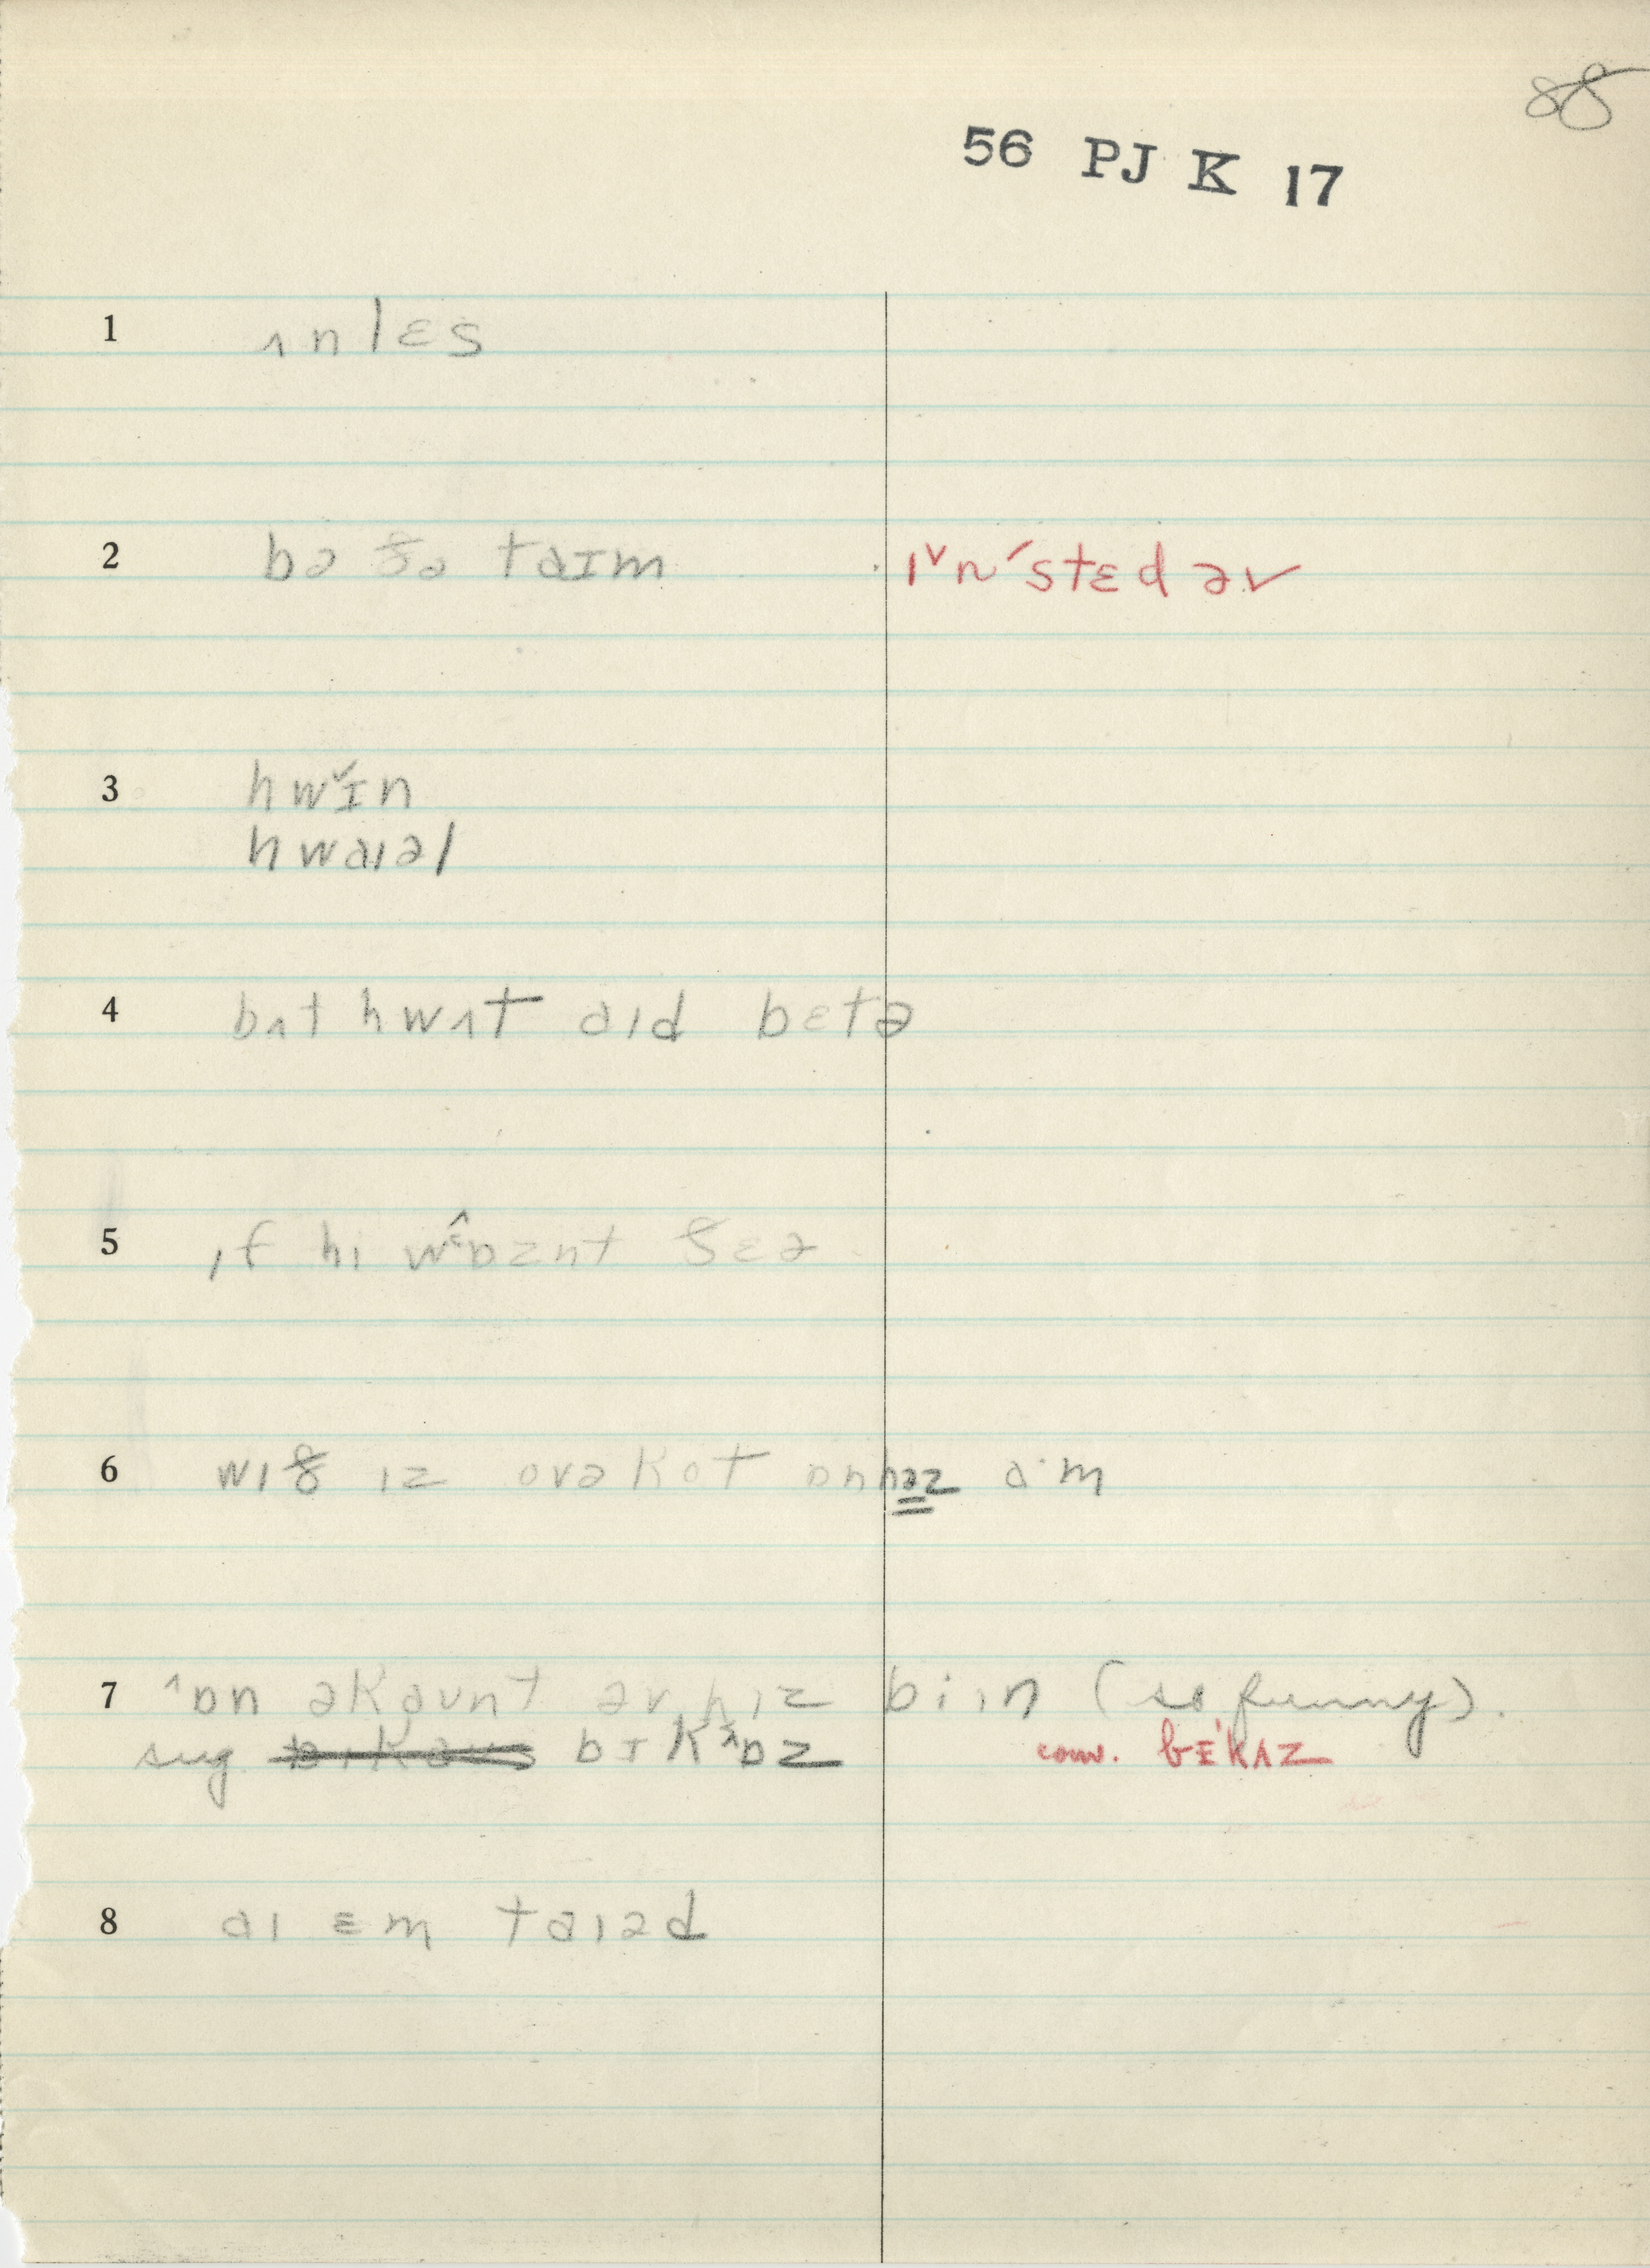 88
56 PJ K 17
1 ʌnlɛs
2 bə ðə taɪm ɪˇn ˊstɛd əv
3 hwɪˇn
hwaɪəl
4 bʌt hwʌt aɪd bɛtə
5 ɪf hi wɒ^znt ðɛə
6 wɪð ɪz ovəkot ɒnhəz a·m
7 ^ɒn əkaunt əv hɪz biɪn (so funny).
sug. bɪkaus bɪk^ɒz conv. bɪˊkʌz
8 aɪ ɛm taɪəd